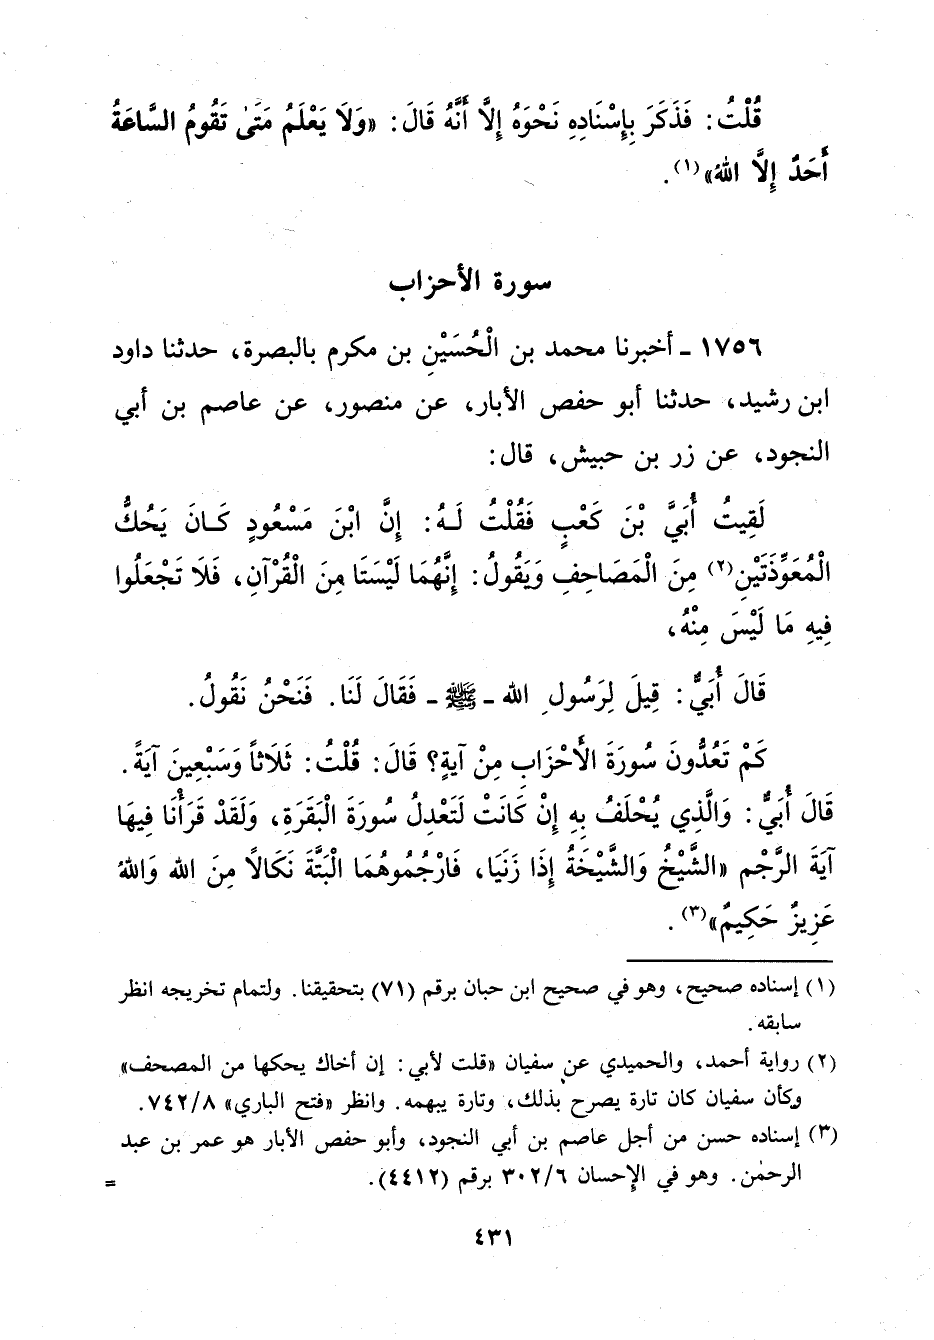 قُلْتُ: فَذَكَرَ بِإِسْنَادِهِ نَحْوَهُ إِلَّا أَنَّهُ قَالَ: «وَلَا يَعْلَمُ مَتَىٰ تَقُومُ السَّاعَةُ
أَحَدٌ إِلَّا اللهُ»(١).
سورة الأحزاب
١٧٥٦ ـ أخبرنا محمد بن الْحُسَيْنِ بن مكرم بالبصرة، حدثنا داود
ابن رشيد، حدثنا أبو حفص الأبار، عن منصور، عن عاصم بن أبي
النجود، عن زر بن حبيش، قال:
لَقِيتُ أُبَيَّ بْنَ كَعْبٍ فَقُلْتُ لَهُ: إِنَّ ابْنَ مَسْعُودٍ كَانَ يَحُكُّ
الْمُعَوِّذَتَيْنِ(٢) مِنَ الْمَصَاحِفِ وَيَقُولُ: إِنَّهُمَا لَيْسَتَا مِنَ الْقُرْآنِ، فَلَا تَجْعَلُوا
فِيهِ مَا لَيْسَ مِنْهُ،
قَالَ أُبَيٌّ: قِيلَ لِرَسُولِ الله ـ ﷺ ـ فَقَالَ لَنَا. فَنَحْنُ نَقُولُ.
كَمْ تَعُدُّونَ سُورَةَ الأَحْزَابِ مِنْ آيَةٍ؟ قَالَ: قُلْتُ: ثَلَاثاً وَسَبْعِينَ آيَةً.
قَالَ أُبَيٌّ: وَالَّذِي يُحْلَفُ بِهِ إِنْ كَانَتْ لَتَعْدِلُ سُورَةَ الْبَقَرَةِ، وَلَقَدْ قَرَأْنَا فِيهَا
آيَةَ الرَّجْمِ «الشَّيْخُ وَالشَّيْخَةُ إِذَا زَنَيَا، فَارْجُمُوهُمَا الْبَتَّةَ نَكَالاً مِنَ الله وَاللهُ
عَزِيزٌ حَكِيمٌ»(٣).
(١) إسناده صحيح، وهو في صحيح ابن حبان برقم (٧١) بتحقيقنا. ولتمام تخريجه انظر
سابقه.
(٢) رواية أحمد، والحميدي عن سفيان «قلت لأبي: إن أخاك يحكها من المصحف»
وكأن سفيان كان تارة يصرح بذلك، وتارة يبهمه. وانظر «فتح الباري» ٧٤٢/٨.
(٣) إسناده حسن من أجل عاصم بن أبي النجود، وأبو حفص الأبار هو عمر بن عبد
الرحمٰن. وهو في الإحسان ٣٠٢/٦ برقم (٤٤١٢). =
٤٣١